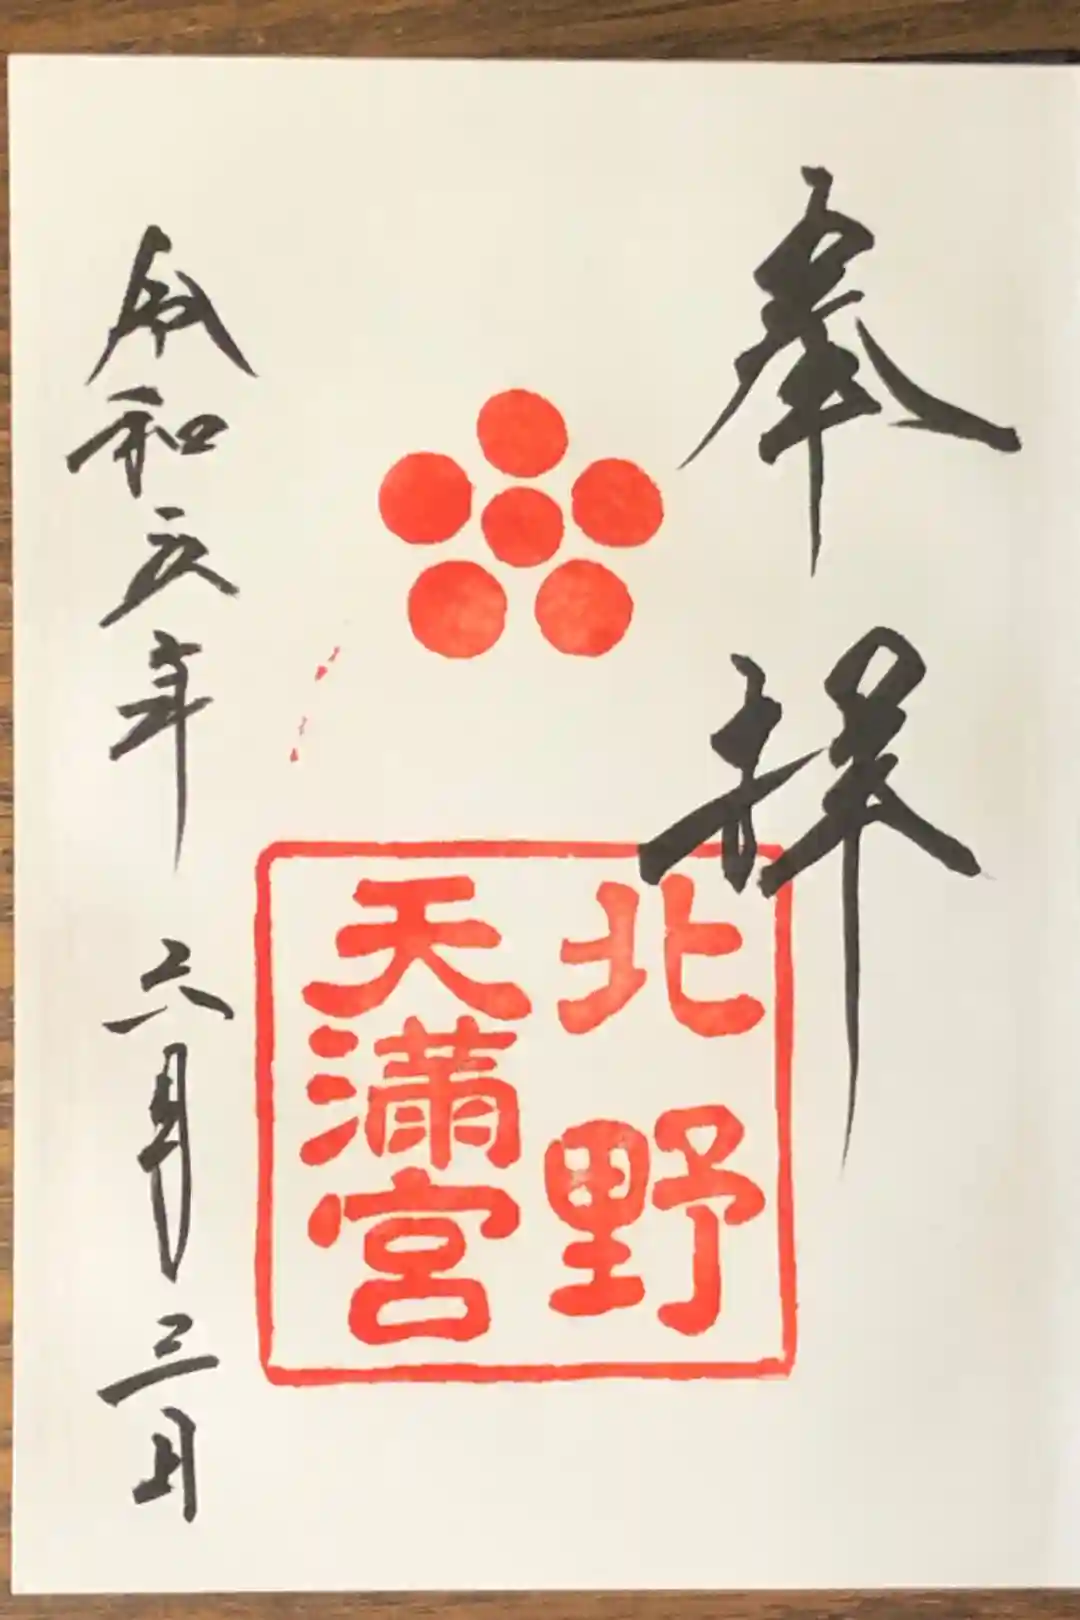 奉拝
北野
天満宮
令和元年六月三日